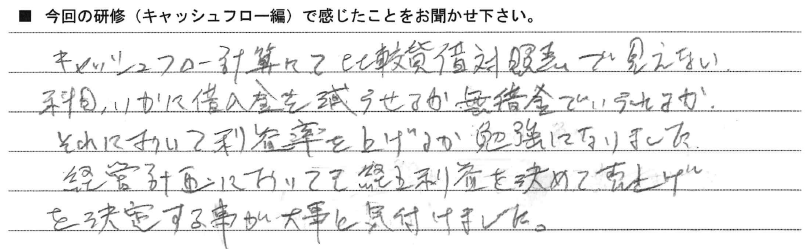 ■ 今回の研修（キャッシュフロー編）で感じたことをお聞かせ下さい。
キャッシュフロー計算にて比較貸借対照表で見えない
科目、いかに借入金を減らせるか無借金でいられるか、
それにおいて利益率を上げるか勉強になりました。
経営計画においても経常利益を決めて売上げ
を決定する事が大事と気付けました。